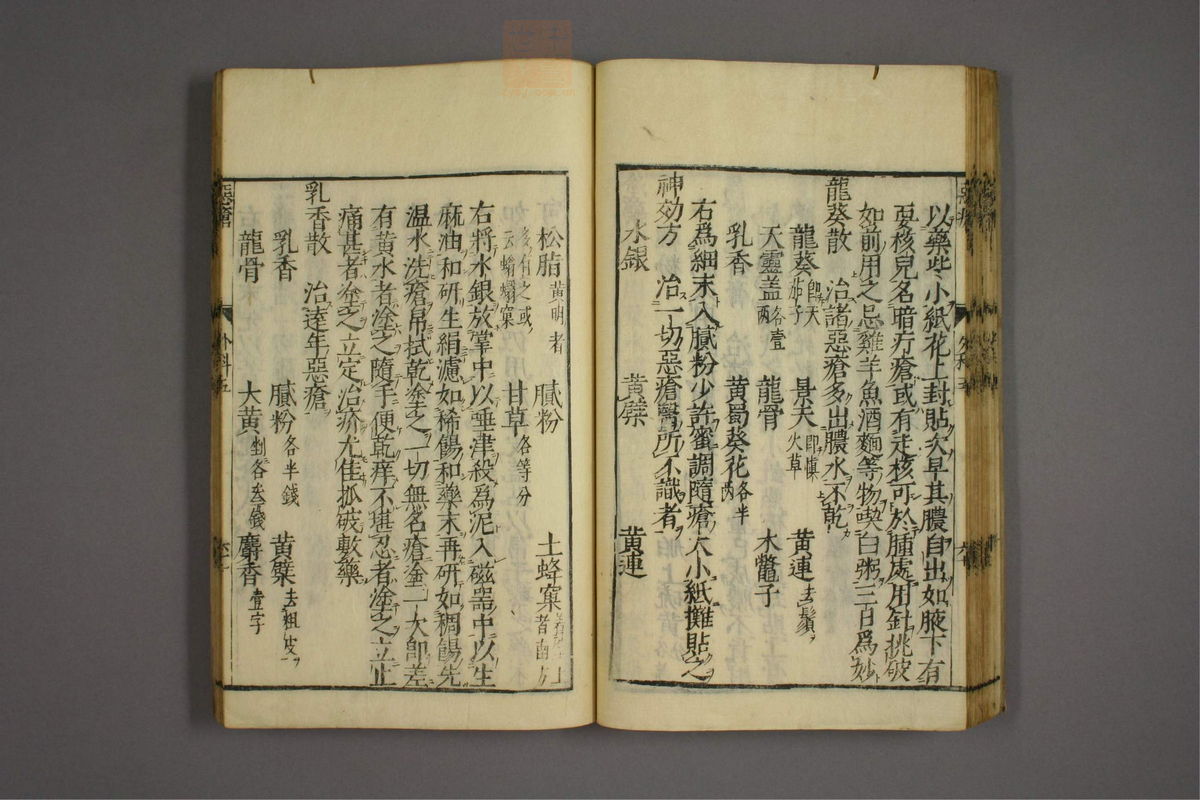 以藥些小紙花上封貼大早其膿自出如腋下有
夏核兒名暗疔瘡或有走核可於腫處用針挑破
如前用之忌雞羊魚酒麵等物喫白粥三日爲妙
龍葵散 治諸惡瘡多出膿水不乾
龍葵 即天茄子 景天 即慎火草 黃連 去鬚
天靈盖 各壹两 龍骨 木鼈子
乳香 黃蜀葵花 各半两
右爲細末入膩粉少許蜜調隨瘡大小紙攤貼之
神効方 治一切惡瘡醫所不識者
水銀 黃蘗 黃連
松脂 黃明者 膩粉 土蜂窠
多有之或云蛸窠 甘草 各等分
右將水銀放掌中以唾津殺爲泥入磁器中以生
麻油和研生絹濾如稀餳和藥末再研如稠餳先
温水洗瘡帛拭乾塗之一切無名瘡塗一大卽差
有黃水者塗之隨手便乾痒不堪忍者塗之立止
痛甚者塗之立定治疥尤佳抓破敷藥
乳香散 治遠年惡瘡
乳香 膩粉 各半錢 黃蘗 去粗皮
龍骨 大黃 剉各叁錢 麝香 壹字
惡瘡 外科五